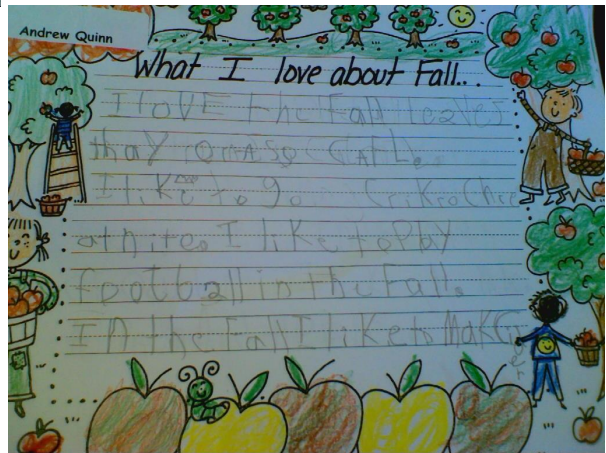 Andrew Quinn
What I love about Fall...
I lovE the Fall leaves
thay
I like to go
at nite. I like to Play
football in the Fall.
In the Fall I like to Make